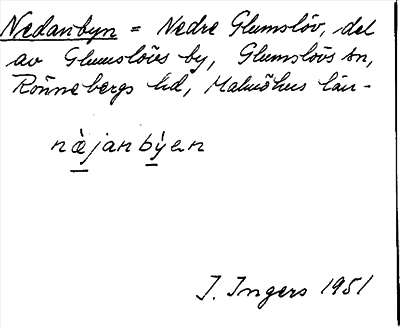 Nedanbyn = Nedre Glumslöv, del
av Glumslövs by, Glumslövs sn,
Rönnebergs hd, Malmöhus län.
næ̀janbỳen
I. Ingers 1951